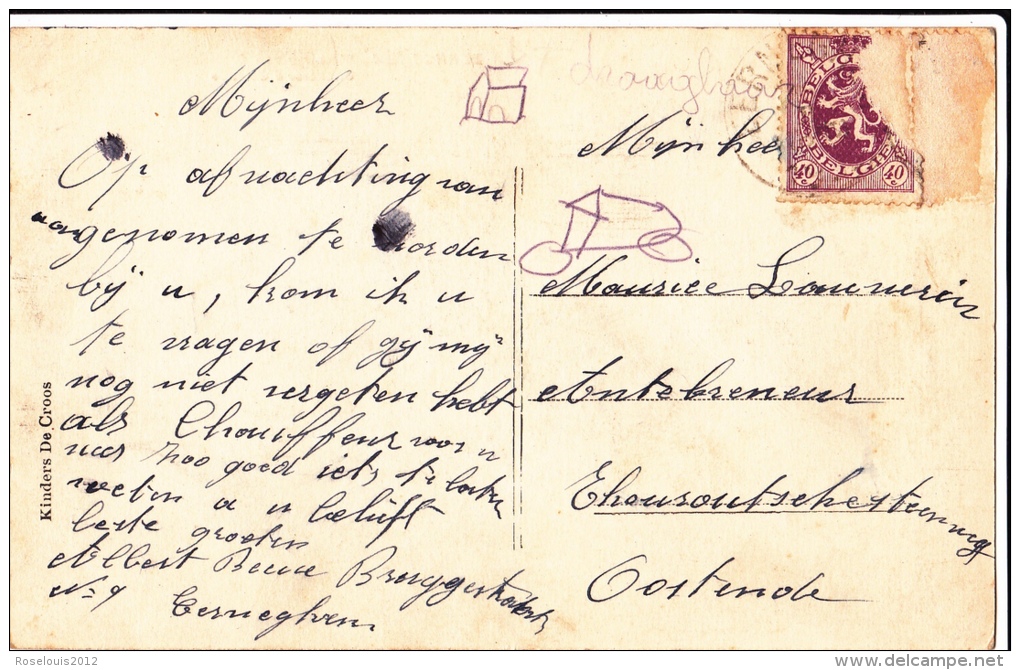 Mijnheer
Op afwachting van
aangenomen te worden
bij u, kom ik u
te vragen of gij mij
nog niet vergeten hebt
als Chauffeur voor u
wees zoo goed iets te laten
weten a u belieft
beste groeten
Albert Bruggestraat
N° 9
Eerneghem
Mijnheer
Maurice
Antebreneur
Thouroutschesteenweg
Oostende
BELGIE
40 c
40 c
Kinders De Croos
Roselouis2012
delcampe.net